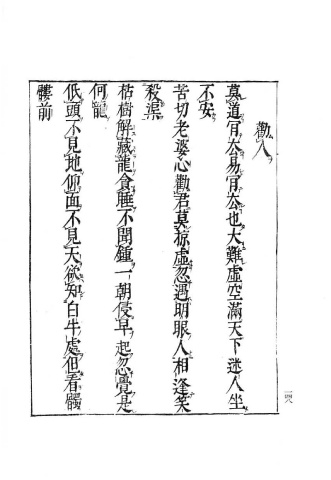 勸人
莫道易也大難虛空滿天下迷人坐
不安
苦切老婆心勸君莫掠虛忽遇明眼人相逢笑
殺渠
枯樹解藏龍貪睡不聞鍾一朝侵早起忽覺是
何龍
低頭不見地仰面不見天欲知白牛處但看髑
髏前
一四八